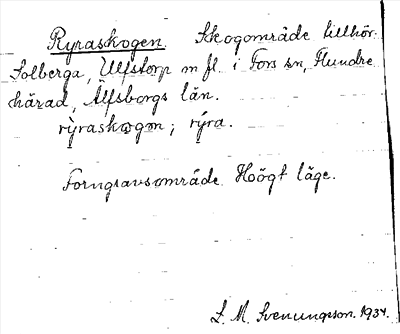 Ryraskogen. Skogområde tillhör.
Solberga, Ulfstorp m fl. i Fors sn, Flundre
härad, Älfsborgs län.
rỳraskogen; rýra.
Forngravsområde. Högt läge.
L. M. Svenungson. 1934.